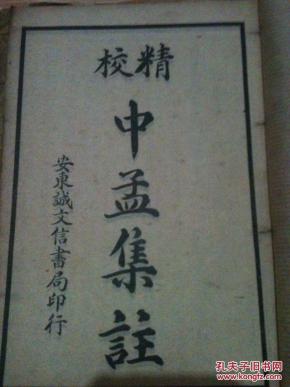 精校
中孟集註
安東誠文信書局印行
孔夫子旧书网